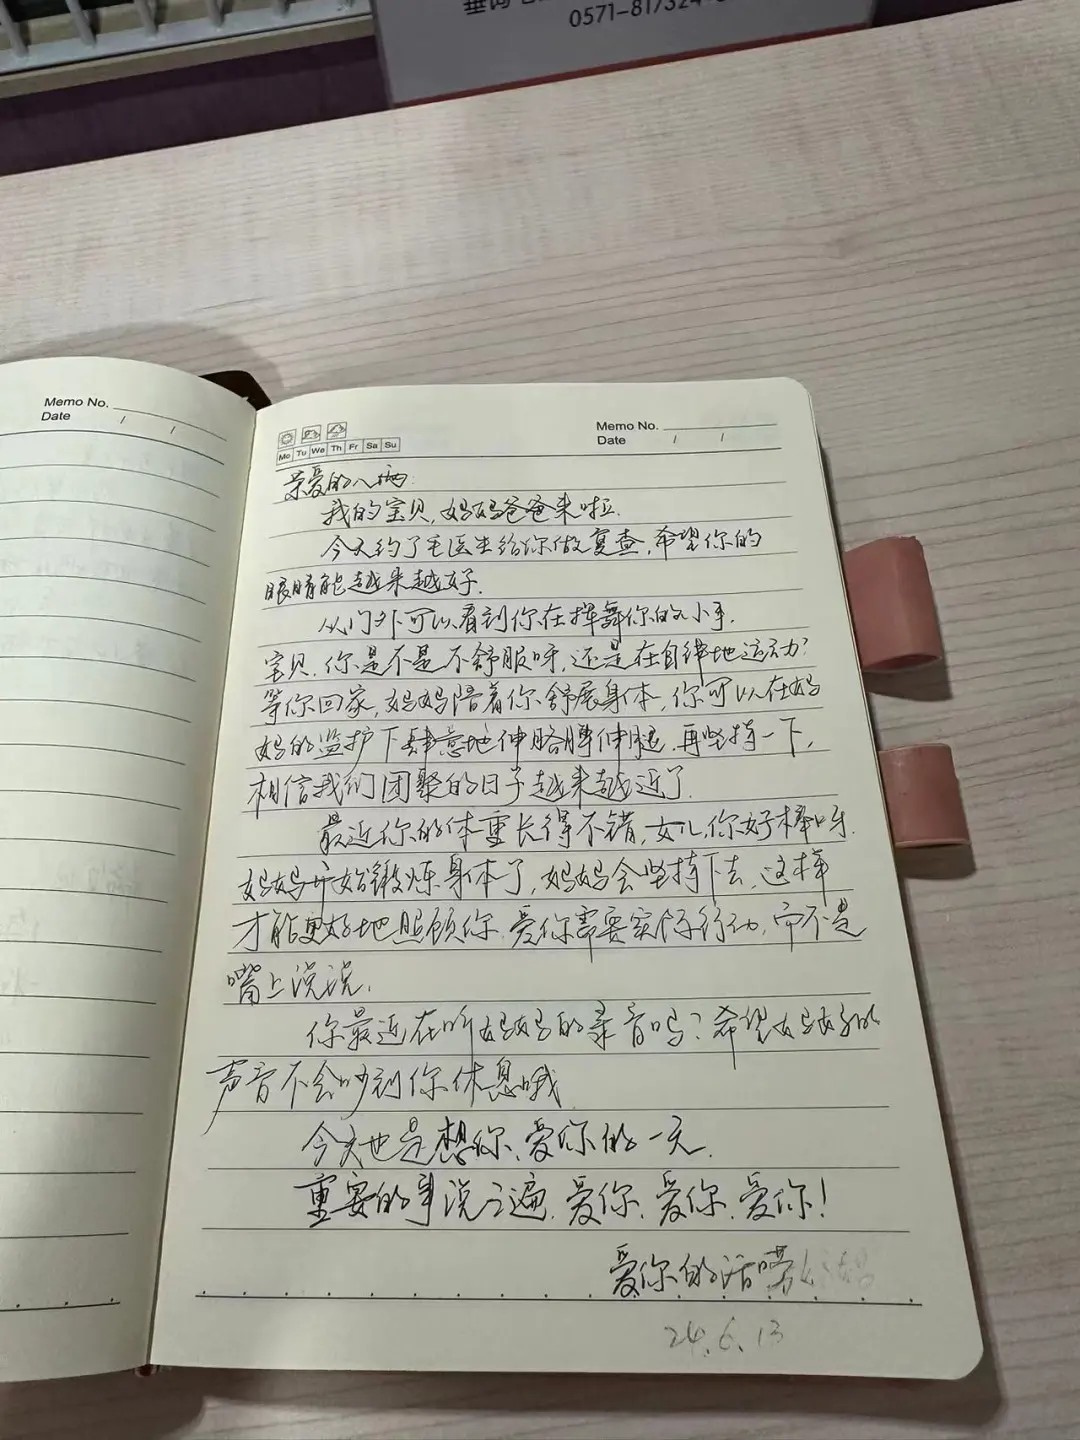 0571-81732
Memo No.
Date / /
Memo No.
Date / /
Mo Tu We Th Fr Sa Su
亲爱的八两:
我的宝贝,妈妈爸爸来啦.
今天约了毛医生给你做复查,希望你的
眼睛能越来越好.
从门外可以看到你在挥舞你的小手.
宝贝,你是不是不舒服呀,还是在自律地运动?
等你回家,妈妈陪着你舒展身体,你可以在妈
妈的监护下肆意地伸胳膊伸腿.再坚持一下,
相信我们团聚的日子越来越近了.
最近你的体重长得不错,女儿,你好棒呀.
妈妈开始锻炼身体了,妈妈会坚持下去,这样
才能更好地照顾你.爱你需要实际行动,而不是
嘴上说说.
你最近在听妈妈的录音吗?希望妈妈的
声音不会吵到你休息哦.
今天也是想你、爱你的一天.
重要的事说三遍.爱你.爱你.爱你!
爱你的话唠妈妈
24.6.13